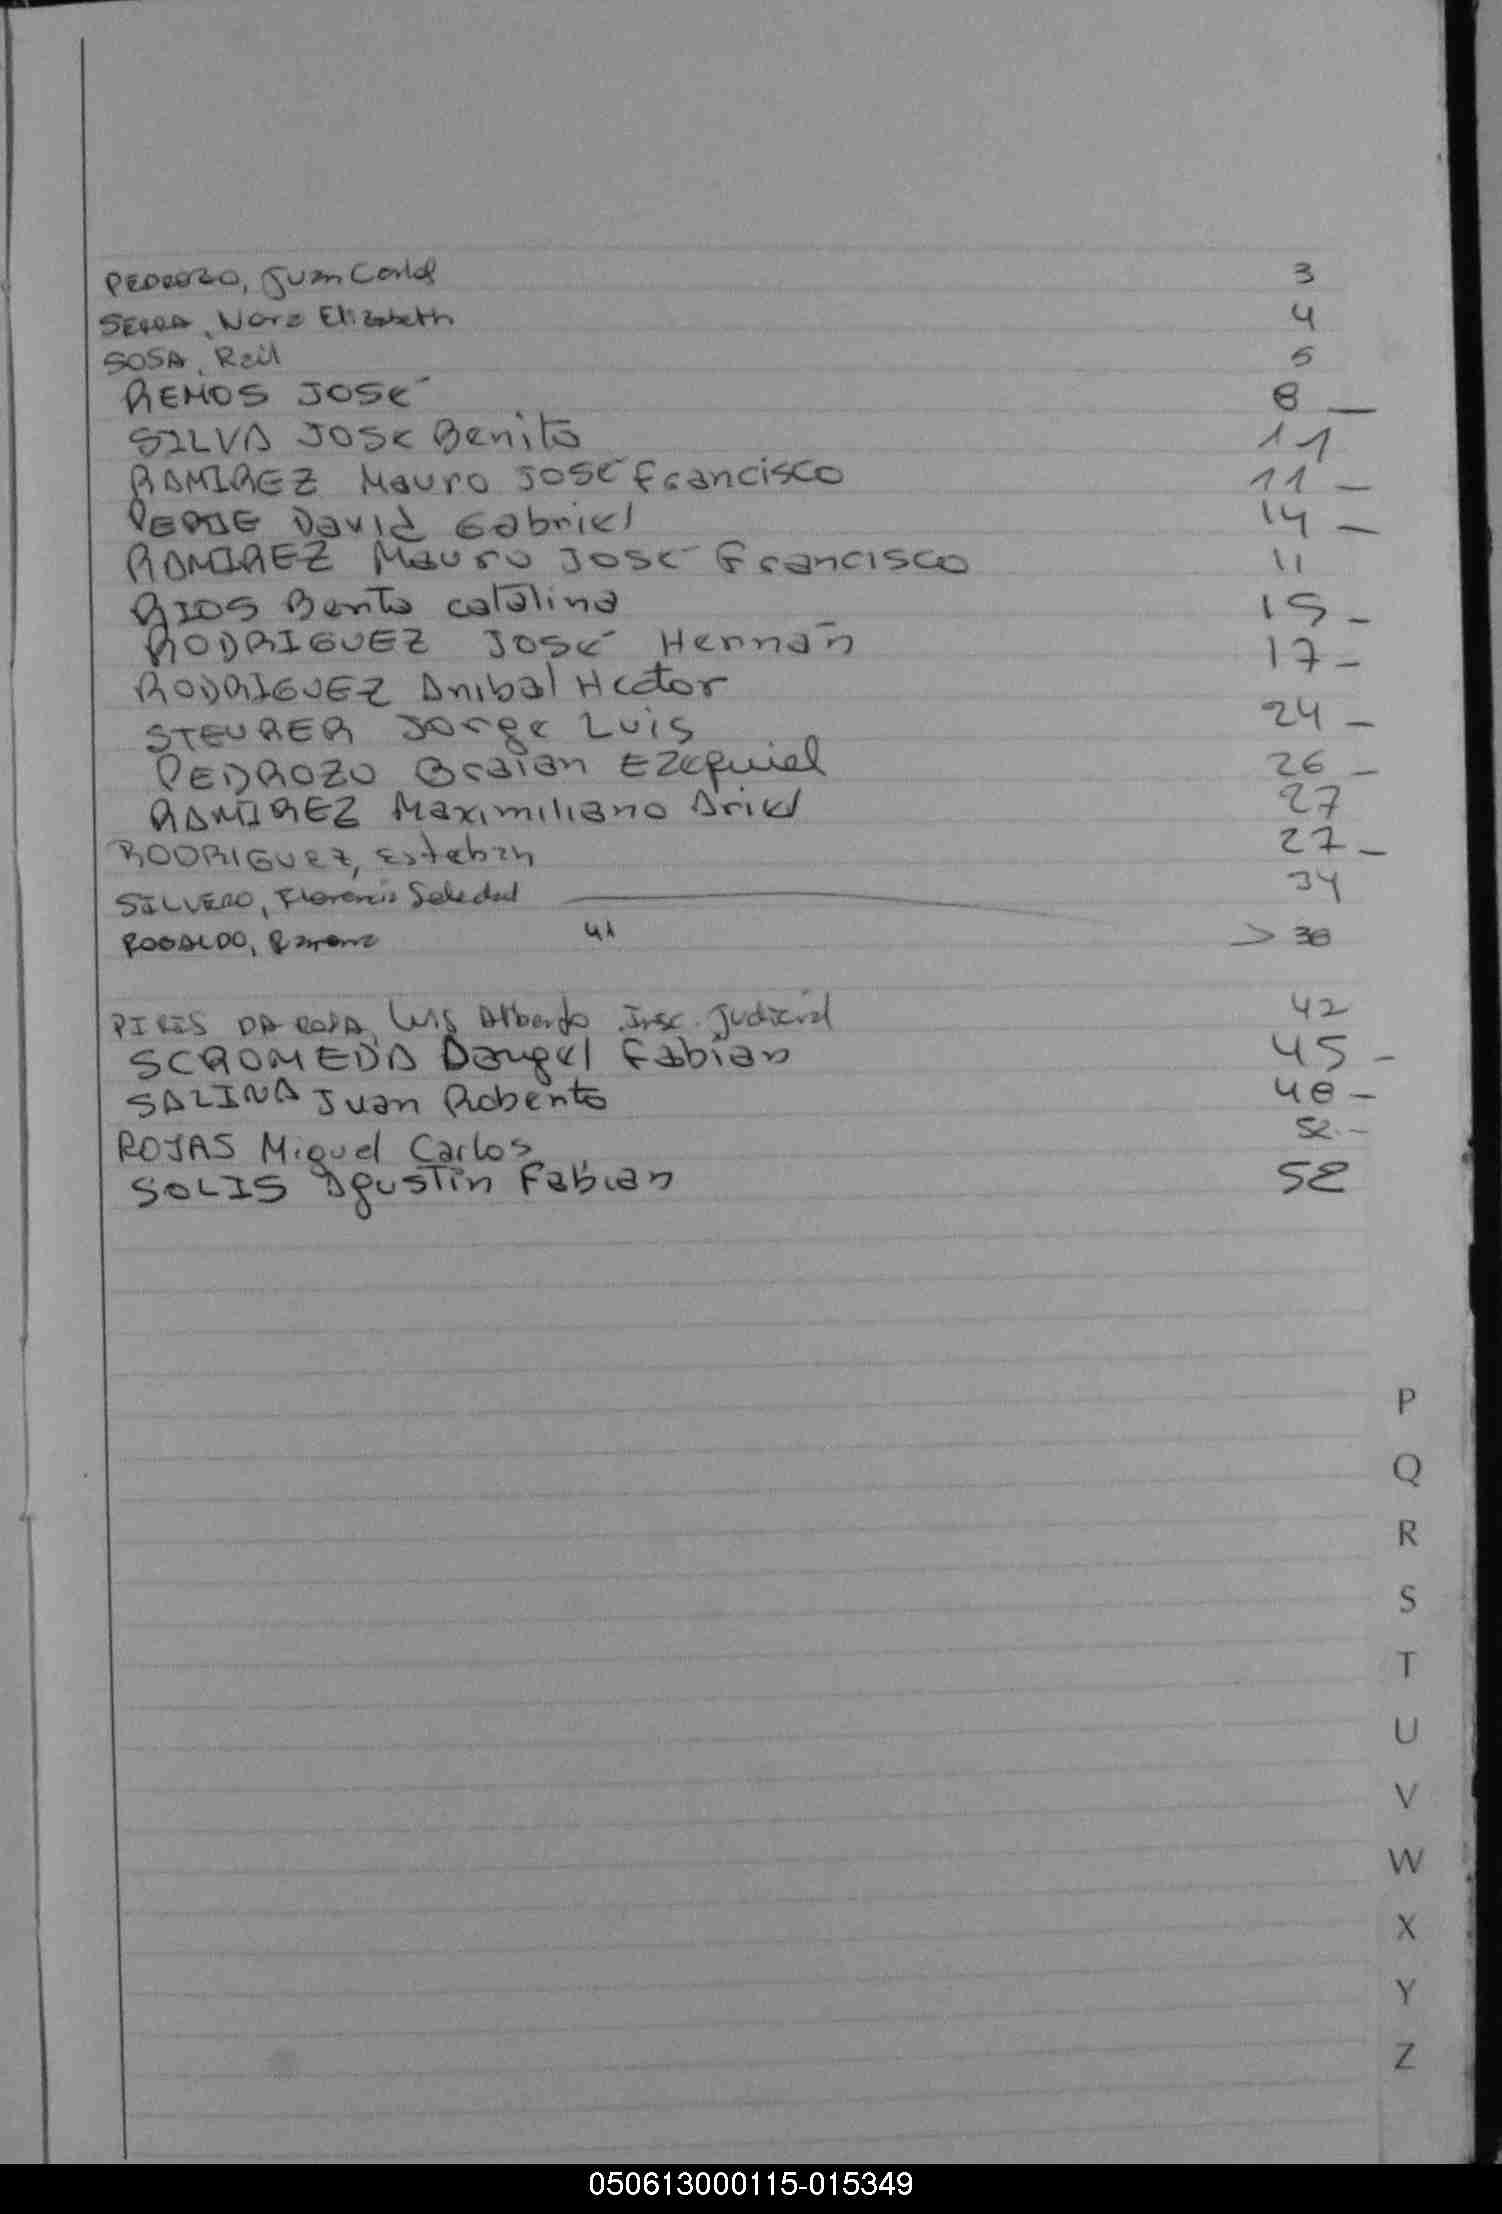 PEDROZO, Juan Carlos 3
SERRA, Nora Elizabeth 4
SOSA, Raúl 5
REMOS JOSÉ 8 _
SILVA JOSE Benito 11
RAMIREZ Mauro JOSÉ Francisco 11 _
David Gabriel 14 _
RAMIREZ Mauro JOSÉ Francisco 11
RIOS Benta Catalina 15 _
RODRIGUEZ José Hernán 17 _
RODRIGUEZ Anibal Hector
STEURER Jorge Luis 24 _
PEDROZO Braian Ezequiel 26 _
RAMIREZ Maximiliano Ariel 27
RODRIGUEZ, Esteban 27 _
SILVERO, Florencia Soledad 34
ROBALDO, 41 > 38
PIRES DA ROSA, Luis Alberto Insc. Judicial 42
SCROMEDA Fabian 45 _
SALINA Juan Roberto 48 _
ROJAS Miguel Carlos 52 _
SOLIS Agustin Fabian 52
P
Q
R
S
T
U
V
W
X
Y
Z
050613000115-015349